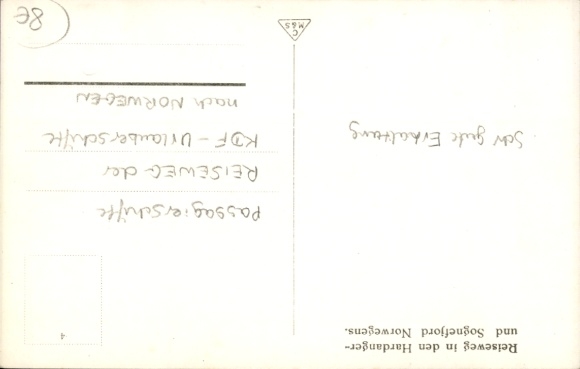 Reiseweg in den Hardanger-
und Sognefjord Norwegens.
Sehr gute Erhaltung
4
Passagierschiffe
REISEWEG der
KDF - Urlauberschiffe
nach NORWEGEN
8€
C
M&S